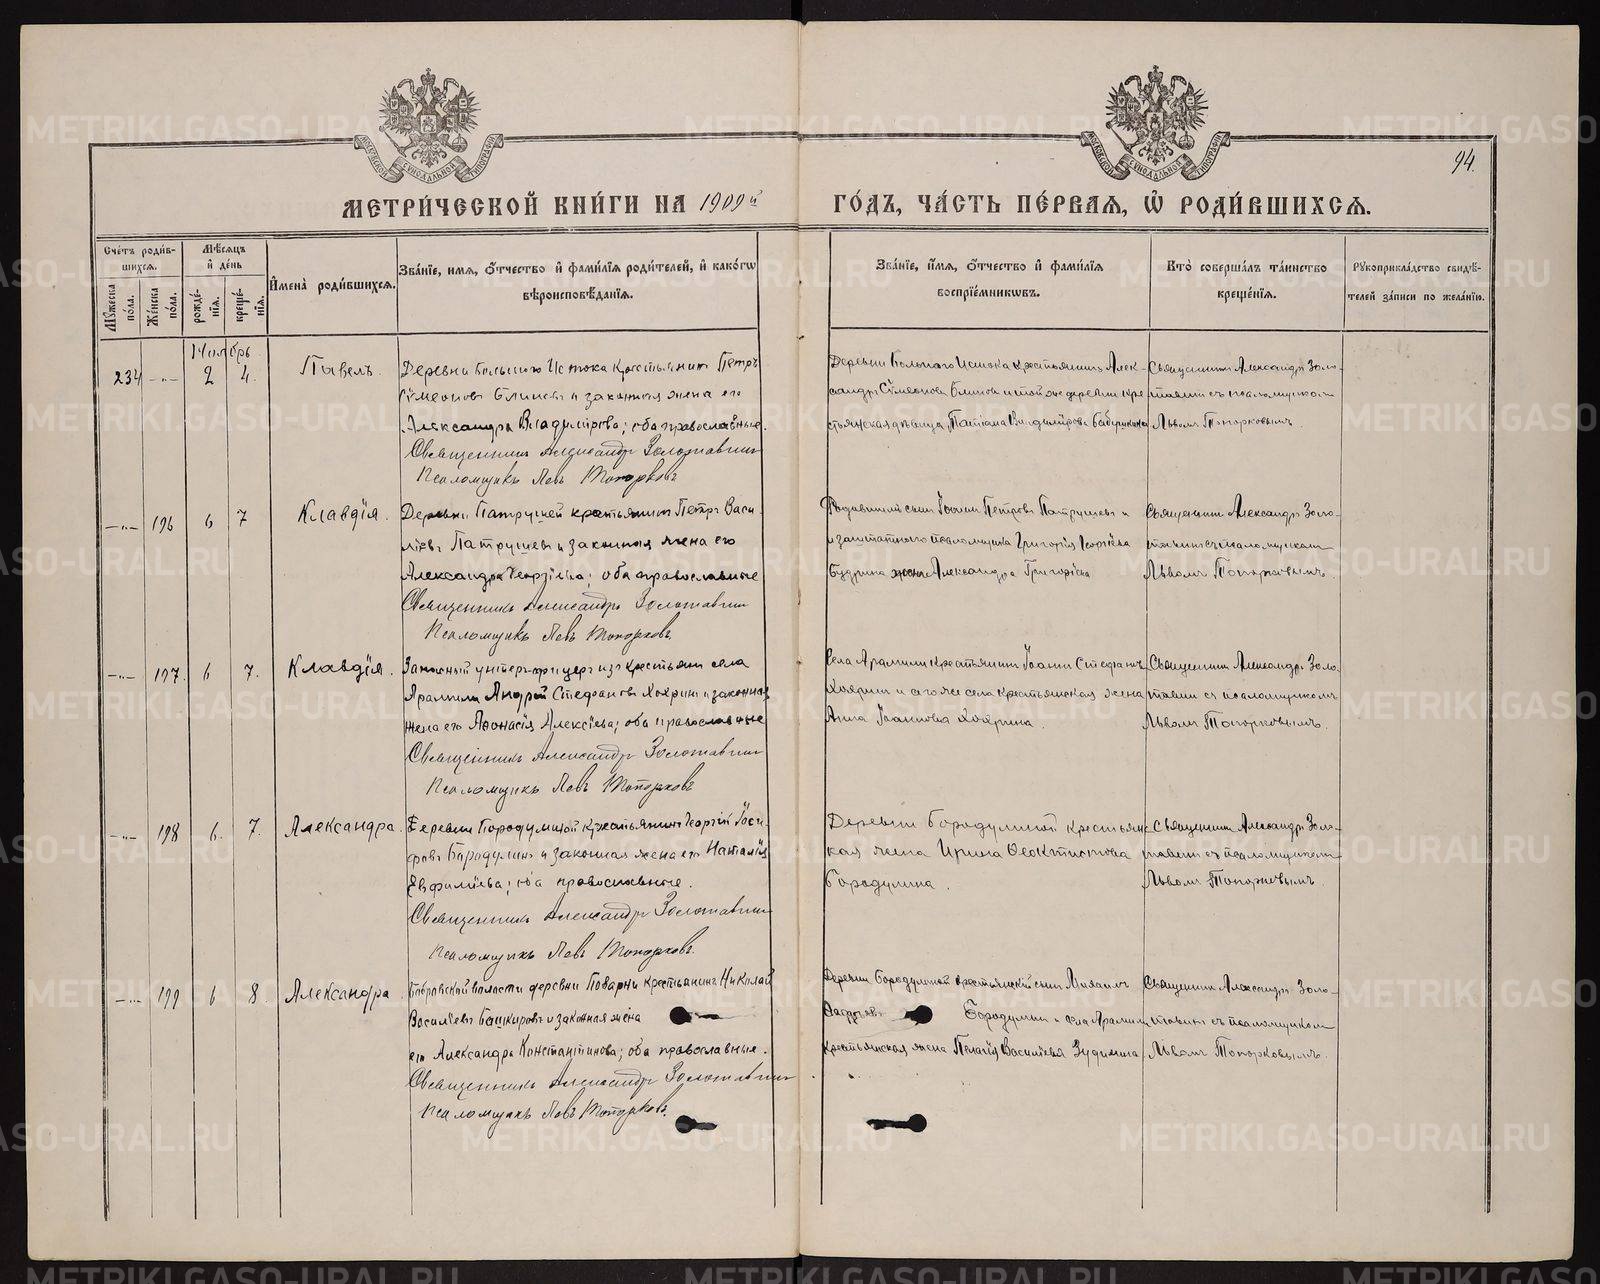 94.
МЕТРИ́ЧЕСКОЙ КНИ́ГИ НА 1909й ГО́ДЪ, ЧА́СТЬ ПЕ́РВАЯ, Ѡ РОДИ́ВШИХСЯ.
Сче́тъ роди́в-
шихся.
Му́жеска по́ла.
Же́нска по́ла.
Мѣ́сяцъ
и де́нь
рожде́-
нїя.
креще́-
нїя.
Имена̀ роди́вшихся.
Зва́нїе, имя, о́тчество и фами́лїя роди́телей, и како́гѡ
вѣроисповѣ́данїя.
Зва́нїе, и́мя, о́тчество и фами́лїя
воспрїе́мникѡвъ.
Кто̀ соверша́лъ та́инство
креще́нїя.
Рукоприкла́дство свидѣ́-
телей за́писи по жела́нїю.
234 -„- 2 4.
Павелъ.
Деревни Большого Истока крестьянинъ Петръ
Сѵмеоновъ Блиновъ и законная жена его
Александра Владимірова; оба православные.
Священникъ Александръ Золотавинъ
Псаломщикъ Левъ Топорковъ
Деревни Большого Истока крестьянинъ Алек-
сандръ Сѵмеоновъ Блиновъ и той же деревни кре-
стьянская дѣвица Татіана Владимірова
Священникъ Александръ Золо-
тавинъ съ псаломщикомъ
Львомъ Топорковымъ.
-„- 196 6 7
Клавдія.
Деревни Патрушей крестьянинъ Петръ Васи-
ліевъ Патрушевъ и законная жена его
Александра Георгіева; оба православные
Священникъ Александръ Золотавинъ
Псаломщикъ Левъ Топорковъ
Іоаннъ Петровъ Патрушевъ и
заштатного псаломщика Григорія Георгіева
жена Александра Григоріева
Священникъ Александръ Золо-
тавинъ съ псаломщикомъ
Львомъ Топорковымъ.
-„- 197. 6 7.
Клавдія.
Запасный унтеръ-офицеръ изъ крестьянъ села
Арамили Андрей Стефановъ Хохринъ и законная
жена его Аѳанасія Алексіева; оба православные
Священникъ Александръ Золотавинъ
Псаломщикъ Левъ Топорковъ
Села Арамили крестьянинъ Іоаннъ Стефановъ
Хохринъ и того же села крестьянская жена
Анна Іоаннова Хохрина.
Священникъ Александръ Золо-
тавинъ съ псаломщикомъ
Львомъ Топорковымъ.
-„- 198 6. 7.
Александра.
Деревни Бородулиной крестьянинъ Георгій Іоси-
фовъ Бородулинъ и законная жена его Наталія
Евфиміева; оба православные.
Священникъ Александръ Золотавинъ
Псаломщикъ Левъ Топорковъ.
Деревни Бородулиной крестьянс-
кая жена Ирина Ѳеоктистова
Бородулина.
Священникъ Александръ Золо-
тавинъ съ псаломщикомъ
Львомъ Топорковымъ.
-„- 199 6 8.
Александра
Бобровской волости деревни Поварни крестьянинъ Николай
Василіевъ Башкировъ и законная жена
его Александра Константинова; оба православные.
Священникъ Александръ Золотавинъ
Псаломщикъ Левъ Топорковъ.
Деревни Бородулиной крестьянскій сынъ
Бородулинъ и села Арамили
крестьянская жена Пелагія Василіева
Священникъ Александръ Золо-
тавинъ съ псаломщикомъ
Львомъ Топорковымъ.
METRIKI.GASO-URAL.RU